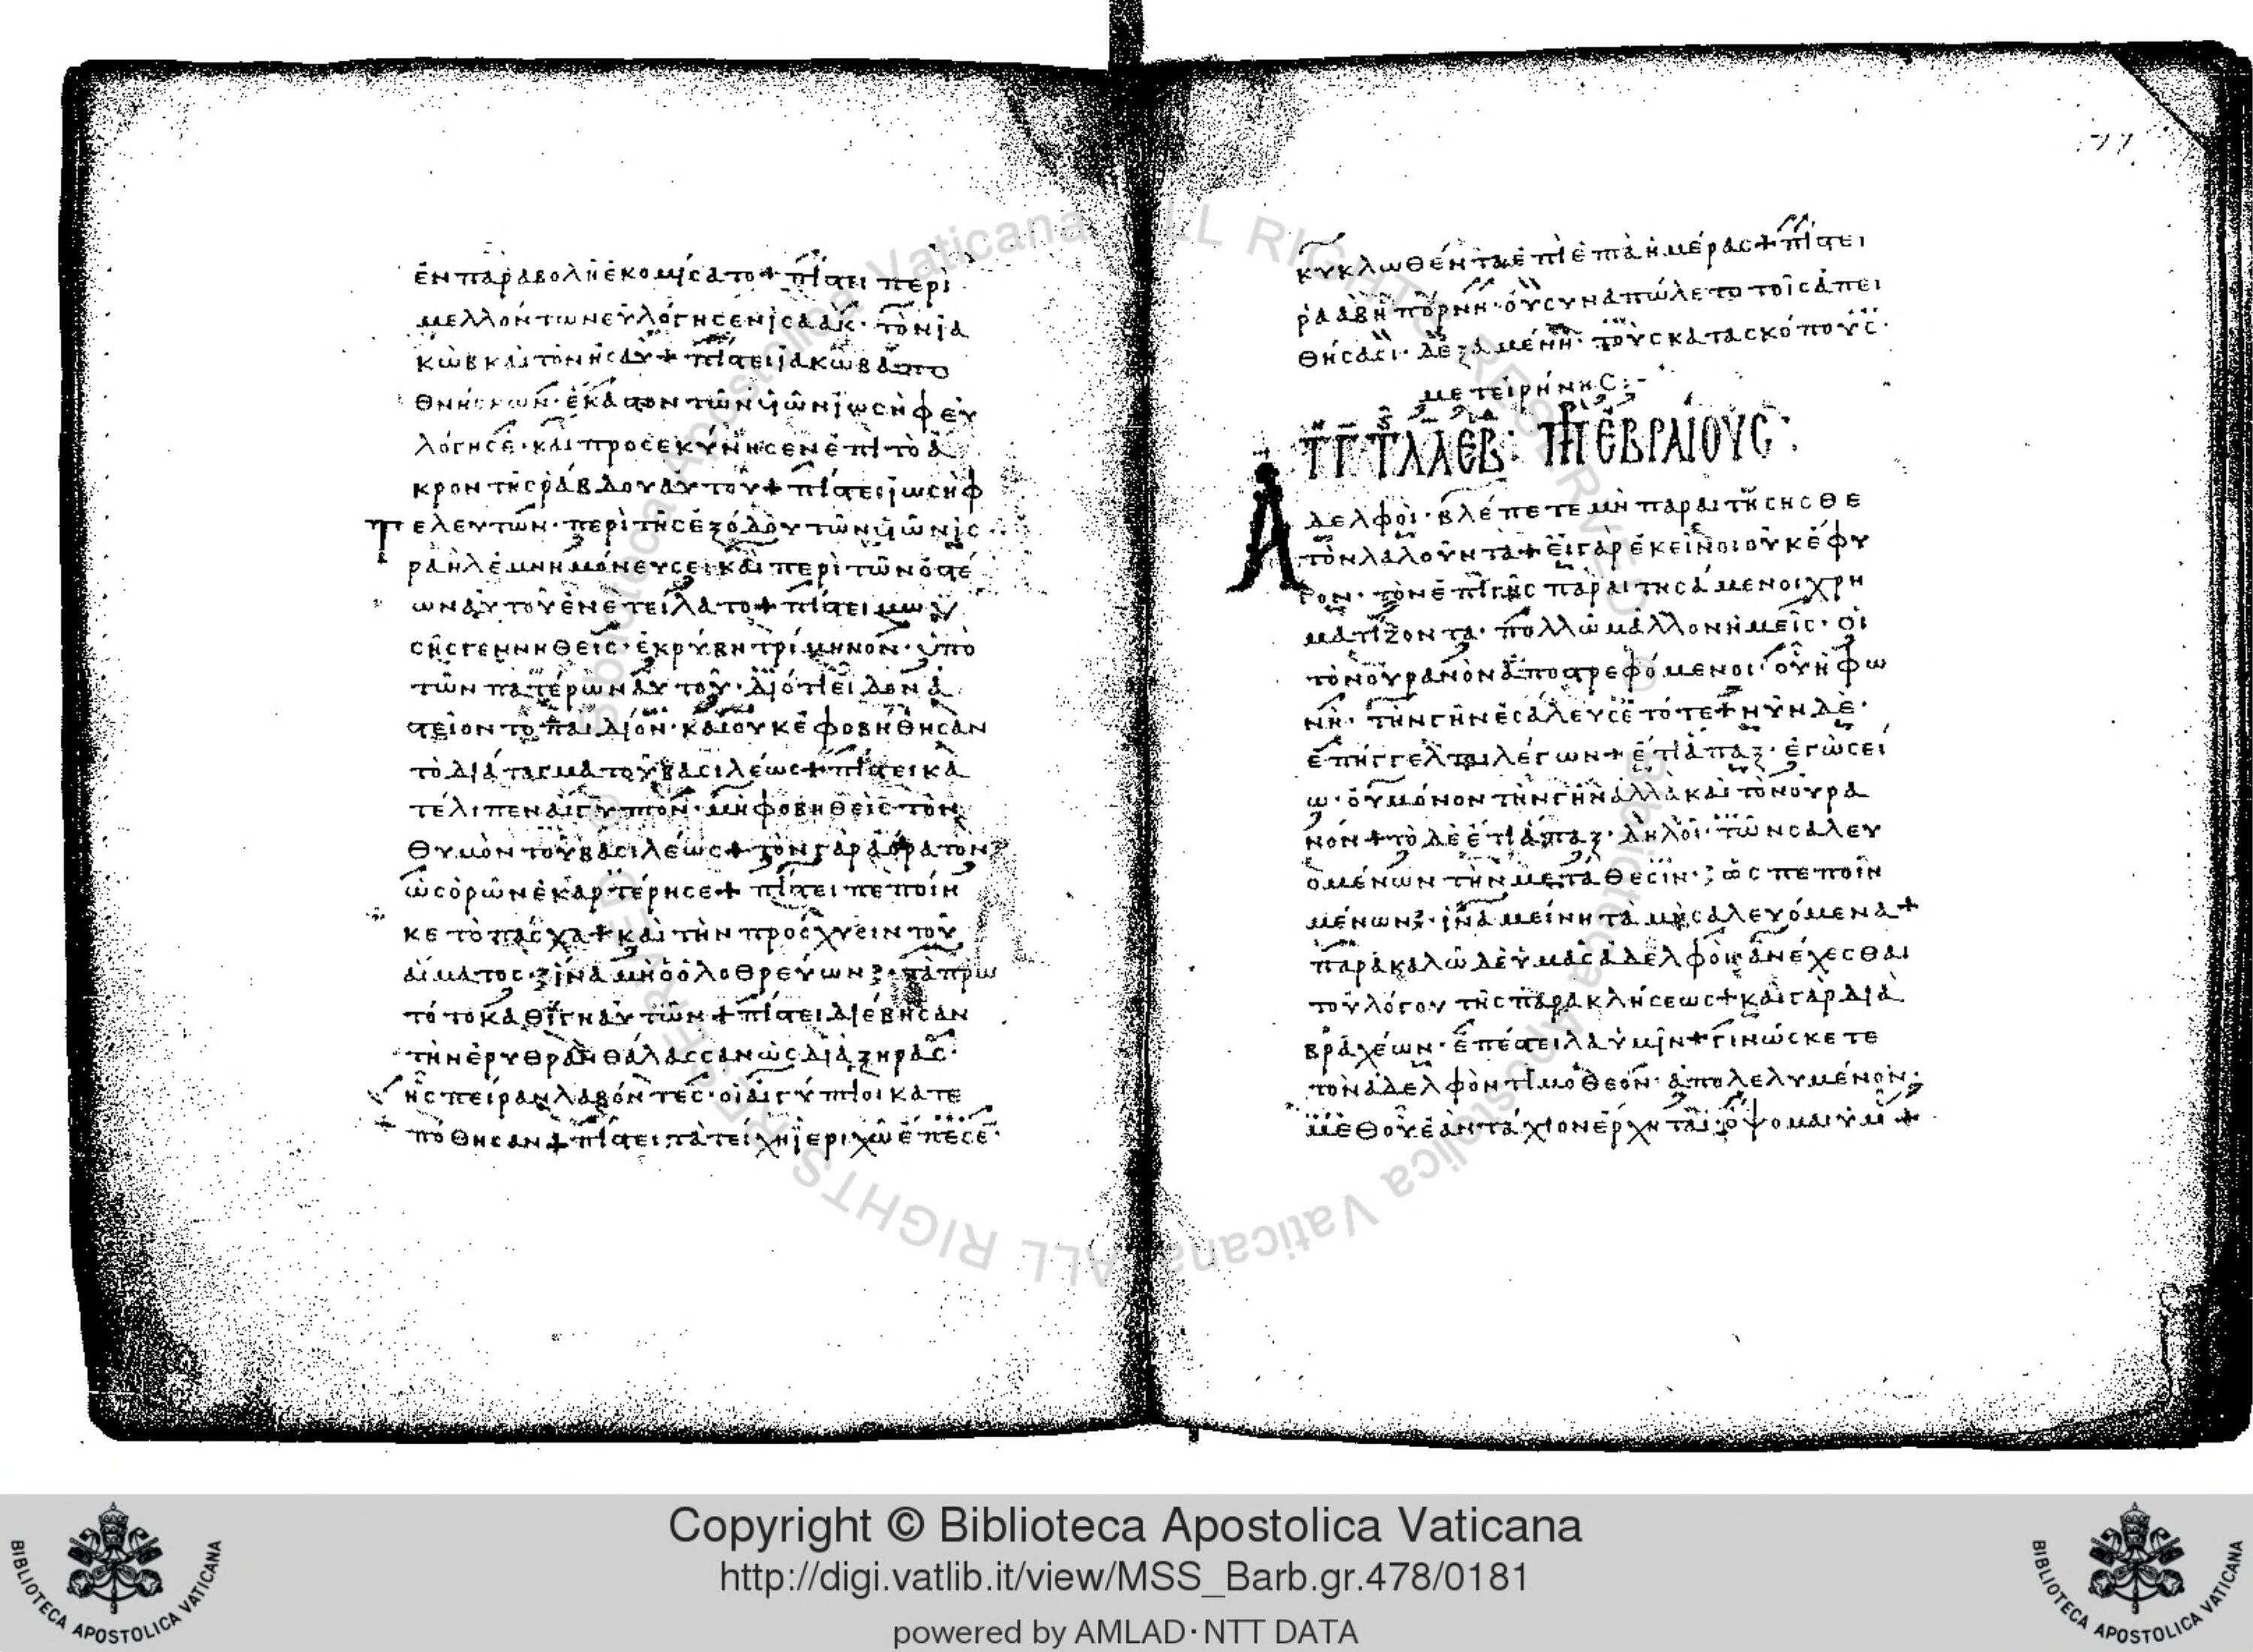 ἐν παραβολῆ ἐκομίσατο + πίστει περὶ
μελλόντων εὐλόγησεν ἰσαάκ · τὸν ἰα
κὼβ καὶ τὸν ἠσαῦ + πίστει ἰακὼβ ἀπο
θνήσκων · ἕκαστον τῶν υἱῶν ἰωσὴφ εὐ
λόγησε · καὶ προσεκύνησεν ἐπὶ τὸ ἄ
κρον τῆς ῥάβδου αὐτοῦ + πίστει ἰωσὴφ
τελευτῶν · περὶ τῆς ἐξόδου τῶν υἱῶν ἰσ
ραὴλ ἐμνημόνευσε · καὶ περὶ τῶν ὀστέ
ων αὐτοῦ ἐνετείλατο + πίστει μωϋ
σῆς γεννηθεὶς · ἐκρύβη τρίμηνον · ὑπὸ
τῶν πατέρων αὐτοῦ · διότι εἶδον ἀ
στεῖον τὸ παιδίον · καὶ οὐκ ἐφοβήθησαν
τὸ διάταγμα τοῦ βασιλέως + πίστει κα
τέλιπεν αἴγυπτον · μὴ φοβηθεὶς τὸν
θυμὸν τοῦ βασιλέως + τὸν γὰρ ἀόρατον
ὡς ὁρῶν ἐκαρτέρησε + πίστει πεποίη
κε τὸ πάσχα + καὶ τὴν πρόσχυσιν τοῦ
αἵματος · ἵνα μὴ ὁ ὀλοθρεύων · τὰ πρω
τότοκα θίγη αὐτῶν + πίστει διέβησαν
τὴν ἐρυθρὰν θάλασσαν ὡς διὰ ξηρᾶς ·
ἧς πεῖραν λαβόντες · οἱ αἰγύπτιοι κατε
πόθησαν + πίστει τὰ τείχη ἱεριχὼ ἔπεσε ·
77
κυκλωθέντα ἐπὶ ἑπτὰ ἡμέρας + πίστει
ῥαὰβ ἡ πόρνη · οὐ συναπώλετο τοῖς ἀπει
θήσασι · δεξαμένη · τοὺς κατασκόπους ·
μετ εἰρήνης :-
ΕΒΡΑΙΟΥΣ :
Ἀδελφοὶ · βλέπετε μὴ παραιτήσησθε
τὸν λαλοῦντα + εἰ γὰρ ἐκεῖνοι οὐκ ἔφυ
γον · τὸν ἐπὶ γῆς παραιτησάμενοι χρη
ματίζοντα · πολλῶ μᾶλλον ἡμεῖς · οἱ
τὸν οὐρανὸν ἀποστρεφόμενοι · οὗ ἡ φω
νὴ · τὴν γῆν ἐσάλευσε τότε + νῦν δὲ ·
ἐπήγγελται λέγων + ἔτι ἅπαξ · ἐγὼ σεί
ω · οὐ μόνον τὴν γῆν ἀλλὰ καὶ τὸν οὐρα
νόν + τὸ δὲ ἔτι ἅπαξ · δηλοῖ · τῶν σαλευ
ομένων τὴν μετάθεσιν · ὡς πεποιη
μένων · ἵνα μείνη τὰ μὴ σαλευόμενα +
παρακαλῶ δὲ ὑμᾶς ἀδελφοὶ · ἀνέχεσθαι
τοῦ λόγου τῆς παρακλήσεως + καὶ γὰρ διὰ
βραχέων · ἐπέστειλα ὑμῖν + γινώσκετε
τὸν ἀδελφὸν τιμόθεον · ἀπολελυμένον ·
μεθ οὗ ἐὰν τάχιον ἔρχηται · ὄψομαι ὑμ +
Copyright © Biblioteca Apostolica Vaticana
http://digi.vatlib.it/view/MSS_Barb.gr.478/0181
powered by AMLAD·NTT DATA
BIBLIOTECA APOSTOLICA VATICANA
BIBLIOTECA APOSTOLICA VATICANA